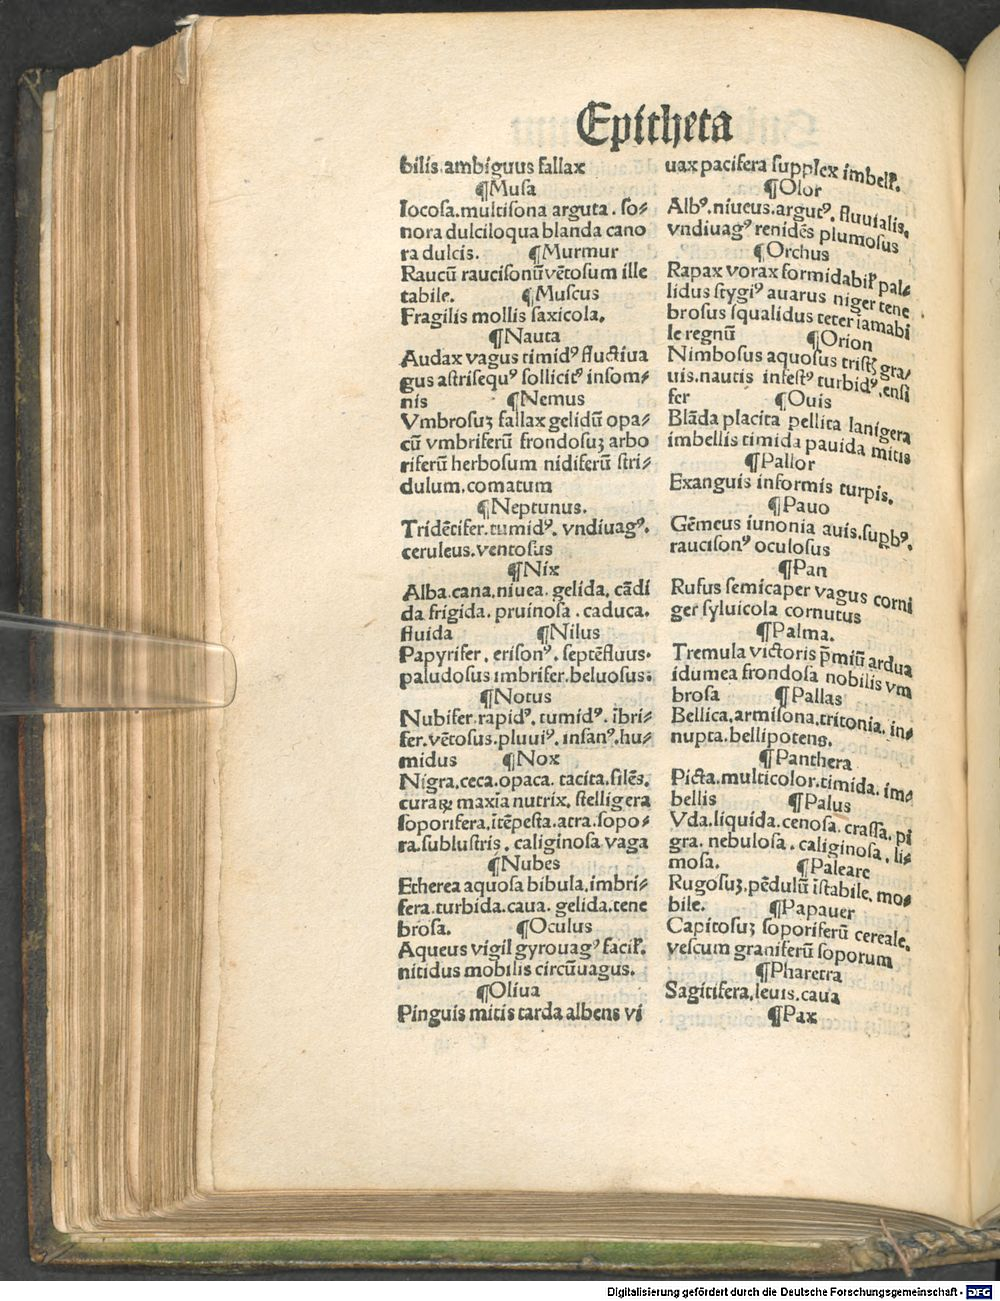 Epitheta
bilis.ambiguus fallax
¶Musa
Iocosa.multisona arguta.so⸗
nora dulciloqua blanda cano
ra dulcis. ¶Murmur
Raucū raucisonū vētosum ille
tabile. ¶Muscus
Fragilis mollis saxicola.
¶Nauta
Audax vagus timidꝰ fluctiua
gus astrisequꝰ sollicitꝰ insom⸗
nis ¶Nemus
Vmbrosuꝫ fallax gelidū opa⸗
cū vmbriferū frondosuꝫ arbo
riferū herbosum nidiferū stri⸗
dulum.comatum
¶Neptunus.
Tridētifer.tumidꝰ. vndiuagꝰ.
ceruleus.ventosus
¶Nix
Alba.cana.niuea.gelida, cādi
da frigida.pruinosa.caduca.
fluida ¶Nilus
Papyrifer.erisonꝰ.septēfluus.
paludosus imbrifer.beluosus:
¶Notus
Nubifer.rapidꝰ.tumidꝰ.ībri⸗
fer.vētosus.pluuiꝰ.insanꝰ.hu⸗
midus ¶Nox
Nigra.ceca.opaca.tacita.silēs.
curaꝝ maxīa nutrix. stelligera
soporifera.ītēpesta.atra.sopo⸗
ra.sublustris.caliginosa vaga
¶Nubes
Etherea aquosa bibula.imbri⸗
fera.turbida.caua.gelida.tene
brosa. ¶Oculus
Aqueus vigil gyrouagꝰ facil̕.
nitidus mobilis circūuagus.
¶Oliua
Pinguis mitis tarda albens vi
uax pacifera supplex imbell̕.
¶Olor
Albꝰ.niueus.argutꝰ.fluuialis.
vndiuagꝰ renidēs plumosus
¶Orchus
Rapax vorax formidabil̕ pal⸗
lidus stygiꝰ auarus niger tene
brosus squalidus teter iamabi
le regnū ¶Orion
Nimbosus aquosus tristꝭ gra⸗
uis.nautis infestꝰ turbidꝰ.ensi
fer ¶Ouis
Blāda placita pellita lanigera
imbellis timida pauida mitis
¶Pallor
Exanguis informis turpis.
¶Pauo
Gēmeus iunonia auis.supbꝰ.
raucisonꝰ oculosus
¶Pan
Rufus semicaper vagus corni
ger syluicola cornutus
¶Palma.
Tremula victoris p̄miū ardua
idumea frondosa nobilis vm
brosa ¶Pallas
Bellica.armisona.tritonia.in⸗
nupta.bellipotens.
¶Panthera
Picta.multicolor.timida.im⸗
bellis ¶Palus
Vda.liquida.cenosa.crassa.pi
gra.nebulosa.caliginosa.li⸗
mosa. ¶Paleare
Rugosuꝫ.pēdulū īstabile.mo⸗
bile. ¶Papauer
Capitosuꝫ soporiferū cereale.
vescum graniferū soporum
¶Pharetra
Sagitifera.leuis.caua
¶Pax
Digitalisierung gefördert durch die Deutsche Forschungsgemeinschaft - DFG